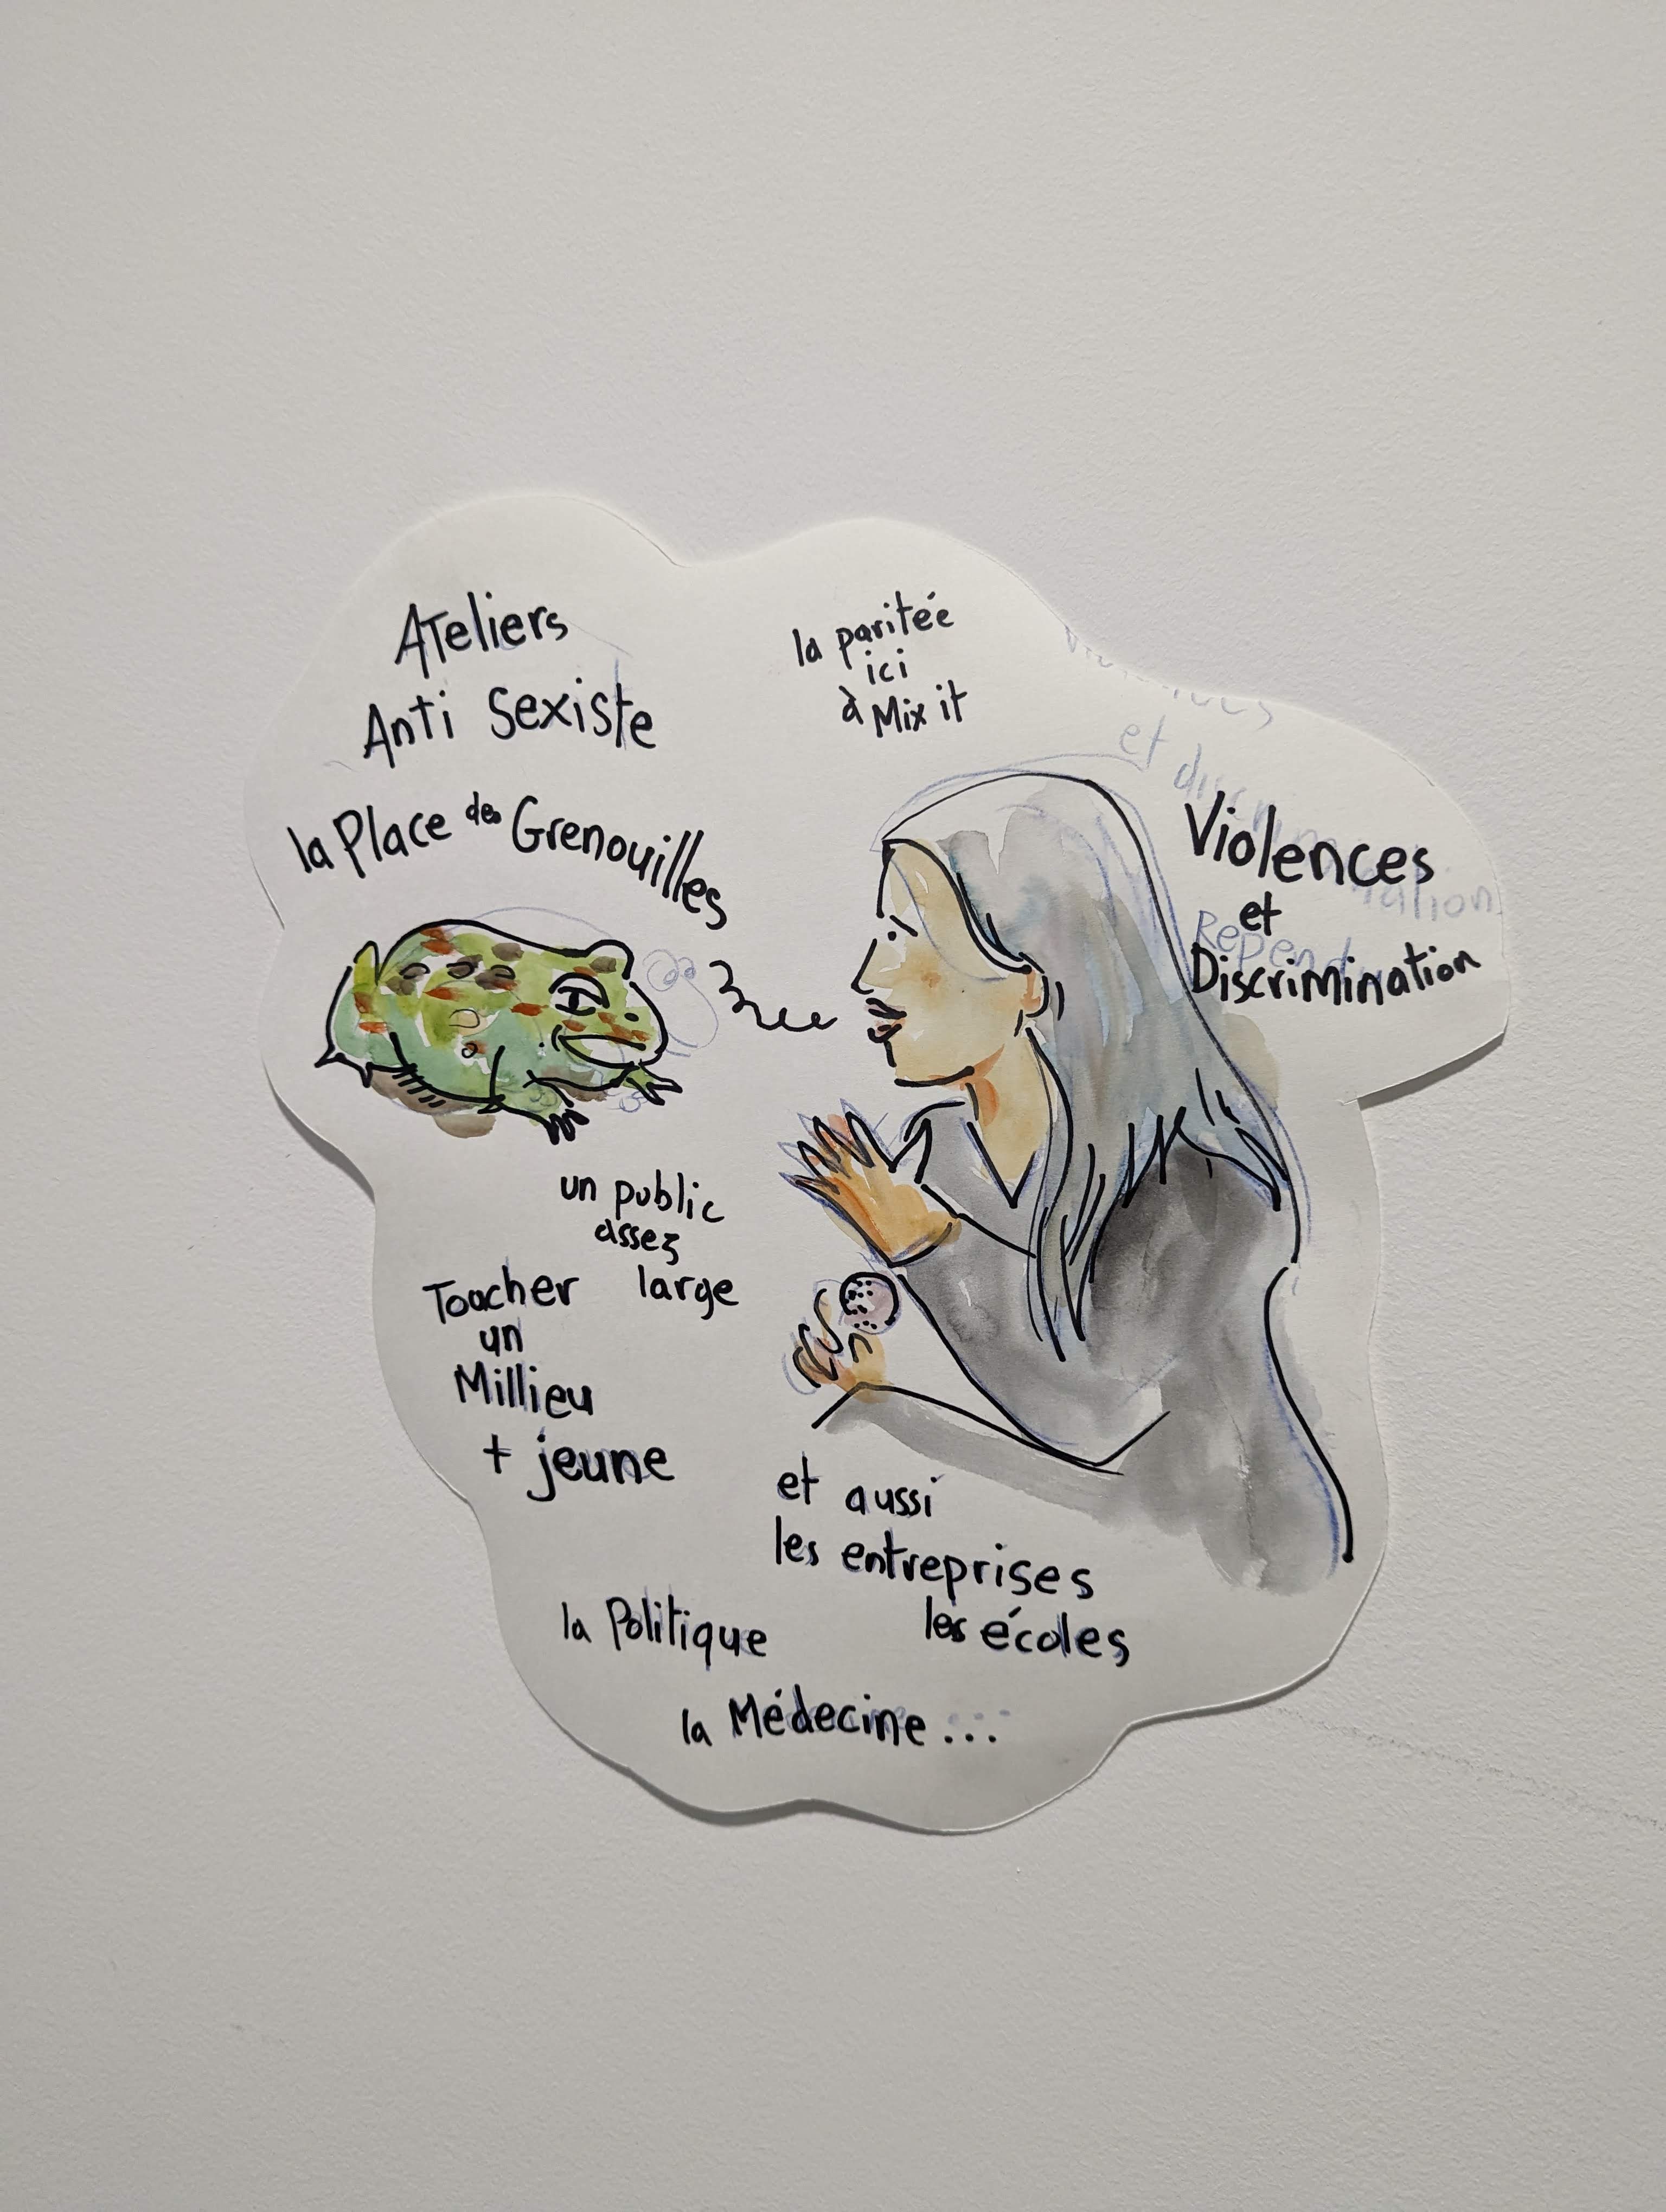 Ateliers
Anti Sexiste
la Place des Grenouilles
la paritée
ici
à Mix it
et
Violences
et
Discrimination
un public
assez
large
Toucher
un
Millieu
+ jeune
et aussi
les entreprises
les écoles
la Politique
la Médecine ...